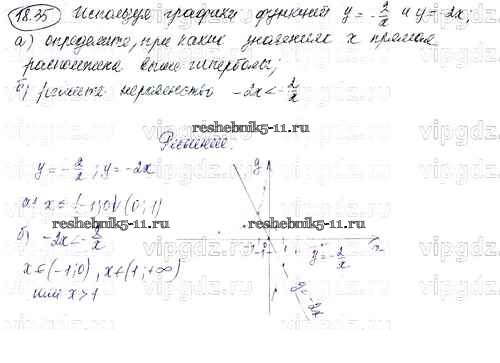 18.35 Используя графики функций y = -2/x и y = -2x;
а) определите, при каких значениях x прямая
расположена выше гиперболы;
б) решите неравенство -2x < -2/x
reshebnik5-11.ru
Решение.
y = -2/x ; y = -2x
y
а) x ∈ (-1; 0) (0; 1)
б) -2x < -2/x
x ∈ (-1; 0), x ∈ (1; +∞)
или x > 1
y = -2/x
x
y = -2x
reshebnik5-11.ru
vipgdz.com